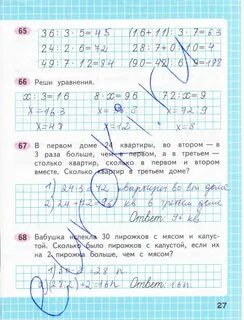 65
36 : 3 · 5 = 45 (16 + 11) : 3 · 7 = 63
24 : 2 · 6 = 72 28 : 7 + 0 · 10 = 4
49 : 7 · 12 = 84 (90 - 42) : 6 · 9 =
66 Реши уравнения.
x : 3 = 16 8 · x = 96 72 : x = 9
x = 16·3 x = 72:9
x = 48 x = 12 x = 8
67 В первом доме 24 квартиры, во втором — в
3 раза больше, чем в первом, а в третьем —
столько квартир, сколько в первом и втором
вместе. Сколько квартир в третьем доме?
1) 24·3 = 72 квартиры во вт доме
2) 24+72 = 96 кв в третьем доме
Ответ: 96 кв
68 Бабушка испекла 30 пирожков с мясом и капус-
той. Сколько было пирожков с капустой, если их
на 2 пирожка больше, чем с мясом?
1) 30-2 = 28 п
Ответ: 16 п
27